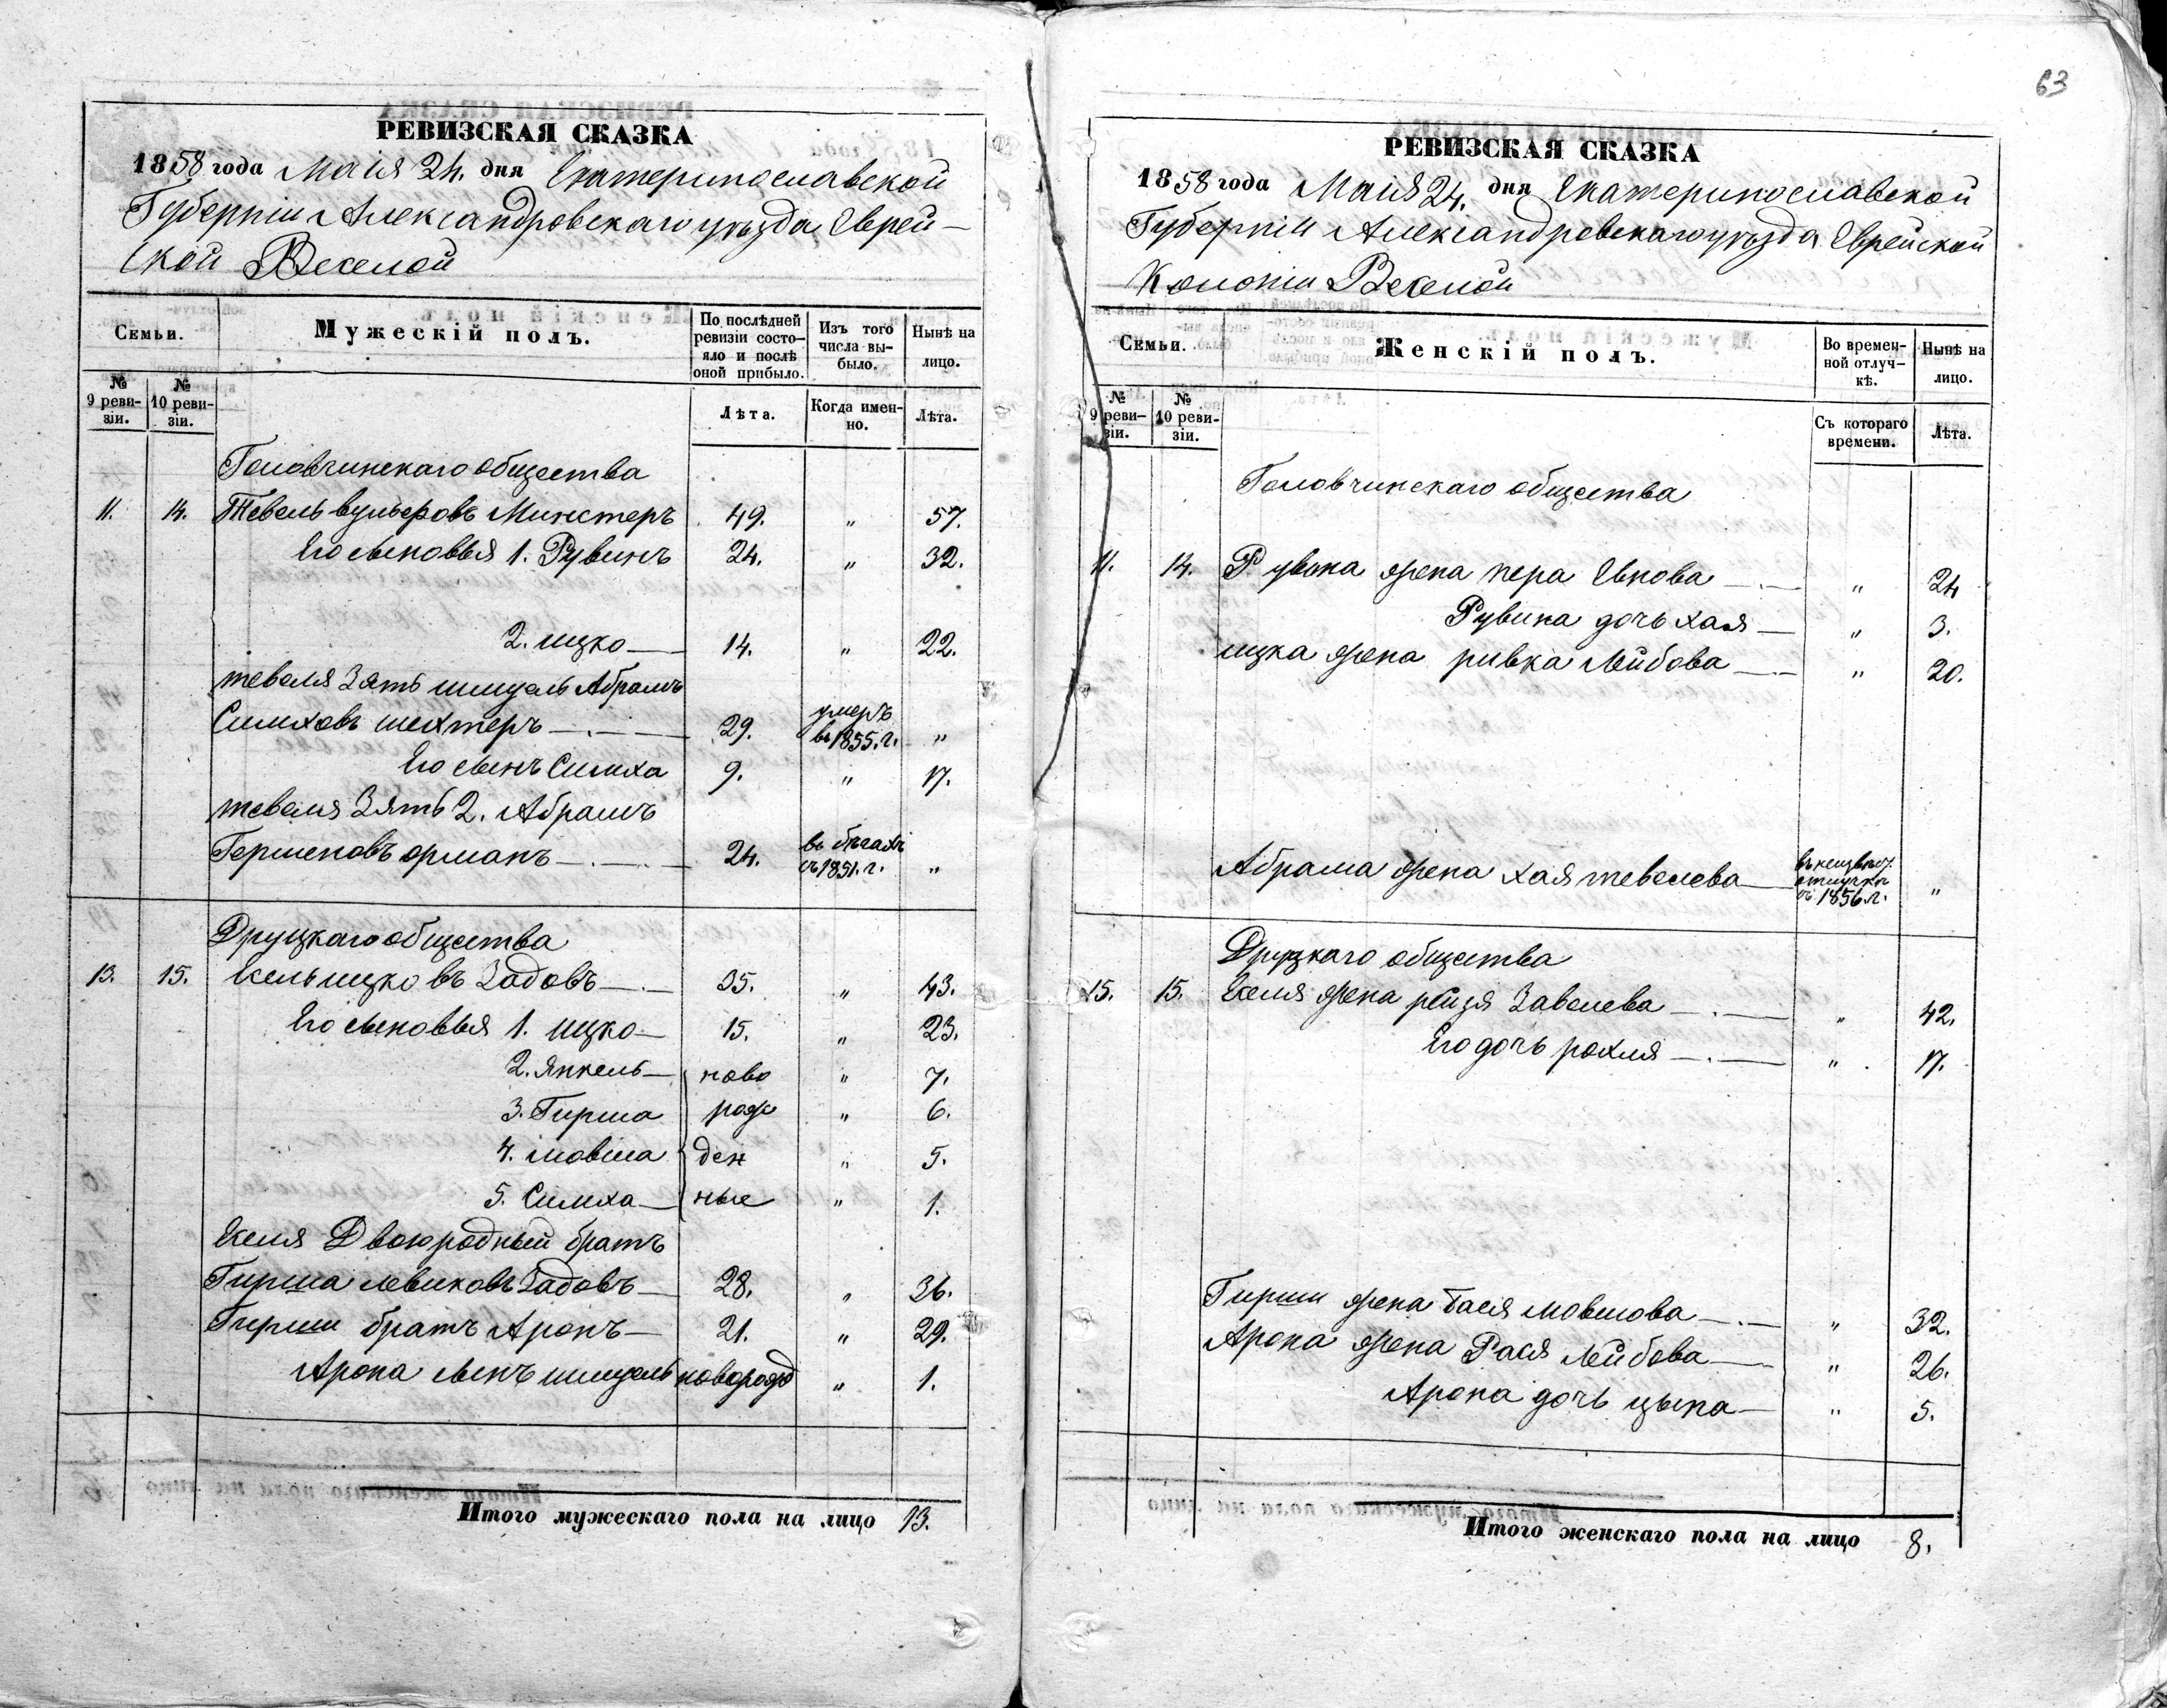 РЕВИЗСКАЯ СКАЗКА
1858 года Маія 24. дня Екатеринославской
Губерніи Александровскаго уѣзда Еврей-
ской Веселой
Семьи.
Мужескій полъ.
По послѣдней ревизіи состояло и послѣ оной прибыло.
Изъ того числа выбыло.
Нынѣ на лицо.
№ 9 ревизіи.
№ 10 ревизіи.
Лѣта.
Когда именно.
Лѣта.
Головчинскаго общества
11. 14. Тевель вульфовъ Минстеръ 49. " 57.
Его сыновья 1. Рувинъ 24. " 32.
2. ицко 14. " 22.
тевеля Зять шмуель Абрамъ
Симховъ шехтеръ 29. умеръ въ 1855. г. "
Его сынъ Симха 9. " 17.
тевеля Зять 2. Абрамъ
Гершеновъ орманъ 24. въ бѣгахъ съ 1851. г. "
Друцкаго общества
13. 15. Хель ицковъ Задовъ 35. " 43.
Его сыновья 1. ицко 15. " 23.
2. Янкель ново " 7.
3. Гирша рож " 6.
4. мовша ден " 5.
5. Симха ные " 1.
Хеля Двоюродный братъ
Гирша левиковъ Задовъ 28. " 36.
Гирши братъ Аронъ 21. " 29.
Арона сынъ шмуель новорожд " 1.
Итого мужескаго пола на лицо 13.
63
РЕВИЗСКАЯ СКАЗКА
1858 года Маія 24. дня Екатеринославской
Губерніи Александровскаго уѣзда Еврейской
Колоніи Веселой
Семьи.
Женскій полъ.
Во временной отлучкѣ.
Нынѣ на лицо.
№ 9 ревизіи.
№ 10 ревизіи.
Съ котораго времени.
Лѣта.
Головчинскаго общества
11. 14. Рувина жена пера Евнова " 24
Рувина дочь хая " 3.
ицка жена ривка Лейбова " 20.
Абрама жена хая тевелева отлучкѣ съ 1856 г. "
Друцкаго общества
15. 15. Хеля жена рейзя Завелева " 42.
Его дочь рохля " 17.
Гирши жена бася мовшова " 32.
Арона жена Рася Лейбова " 26.
Арона дочь цына " 5.
Итого женскаго пола на лицо 8.